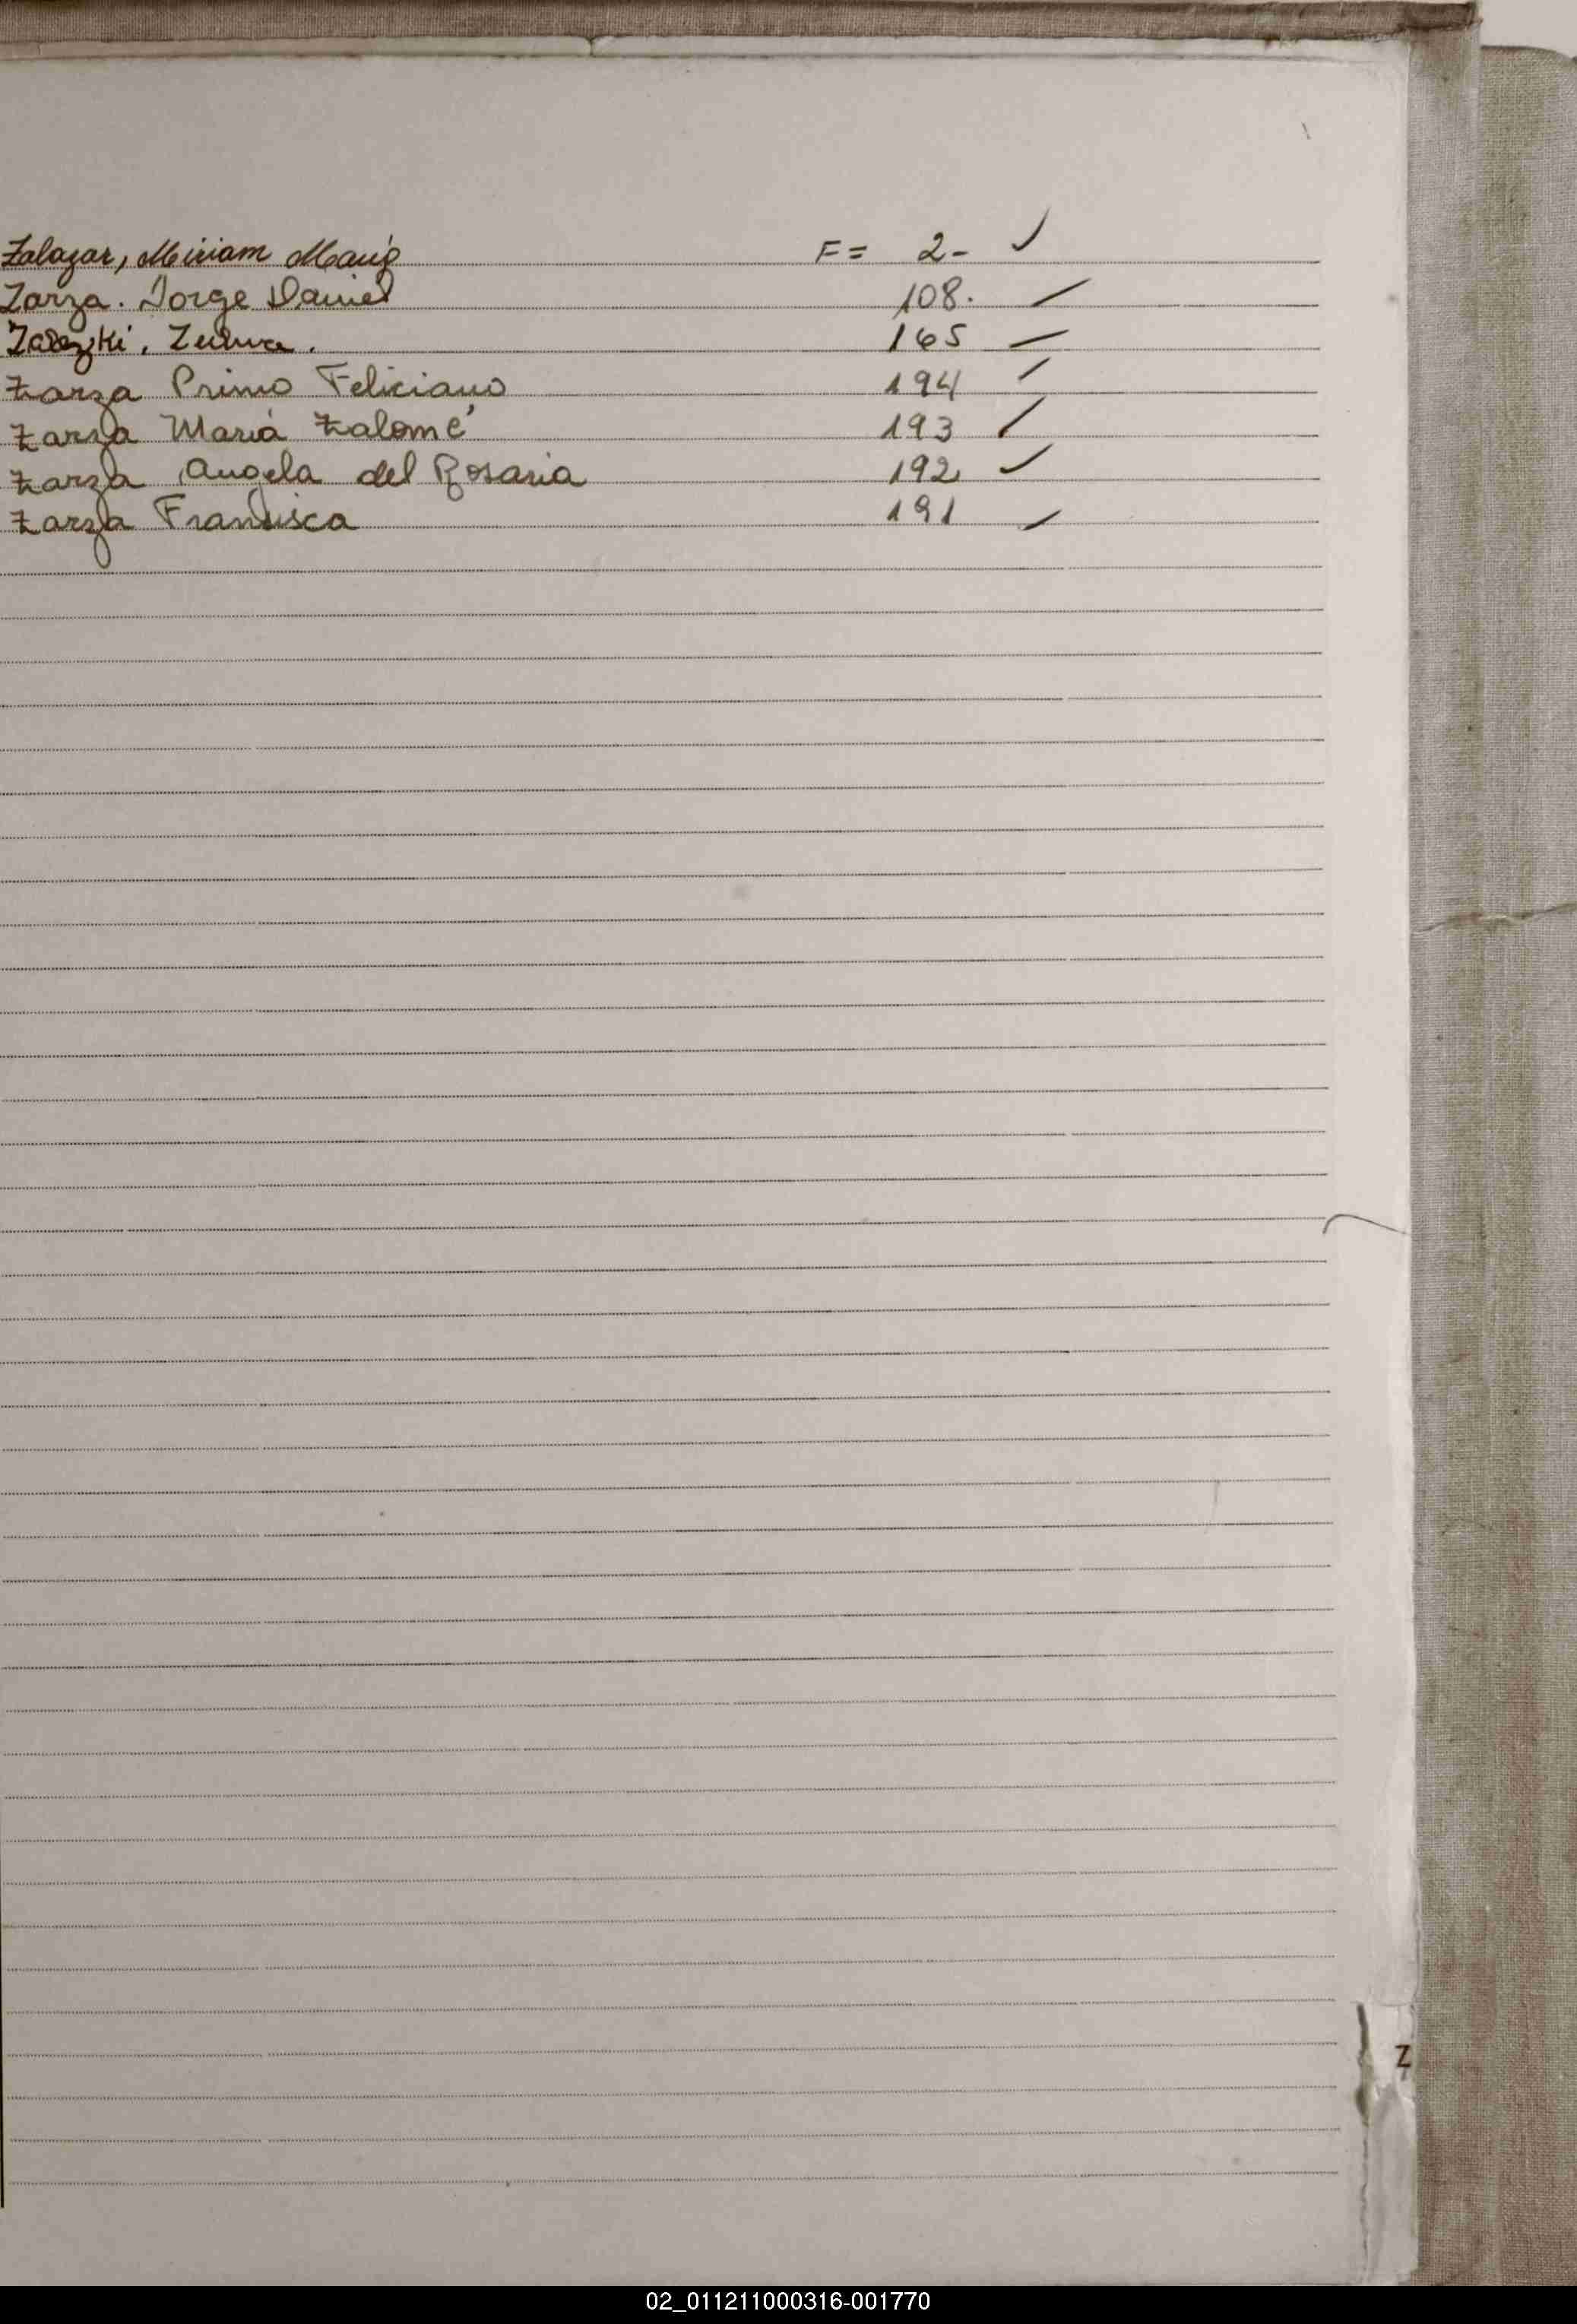 Zalazar, Miriam María F= 2- ✓
Zarza. Jorge Daniel 108.
Zulma. 165
Zarza Primo Feliciano 194
Zarza María Zalomé 193
Zarza Angela del Rosaria 192 ✓
Zarza Fransisca 191
Z
02_011211000316-001770